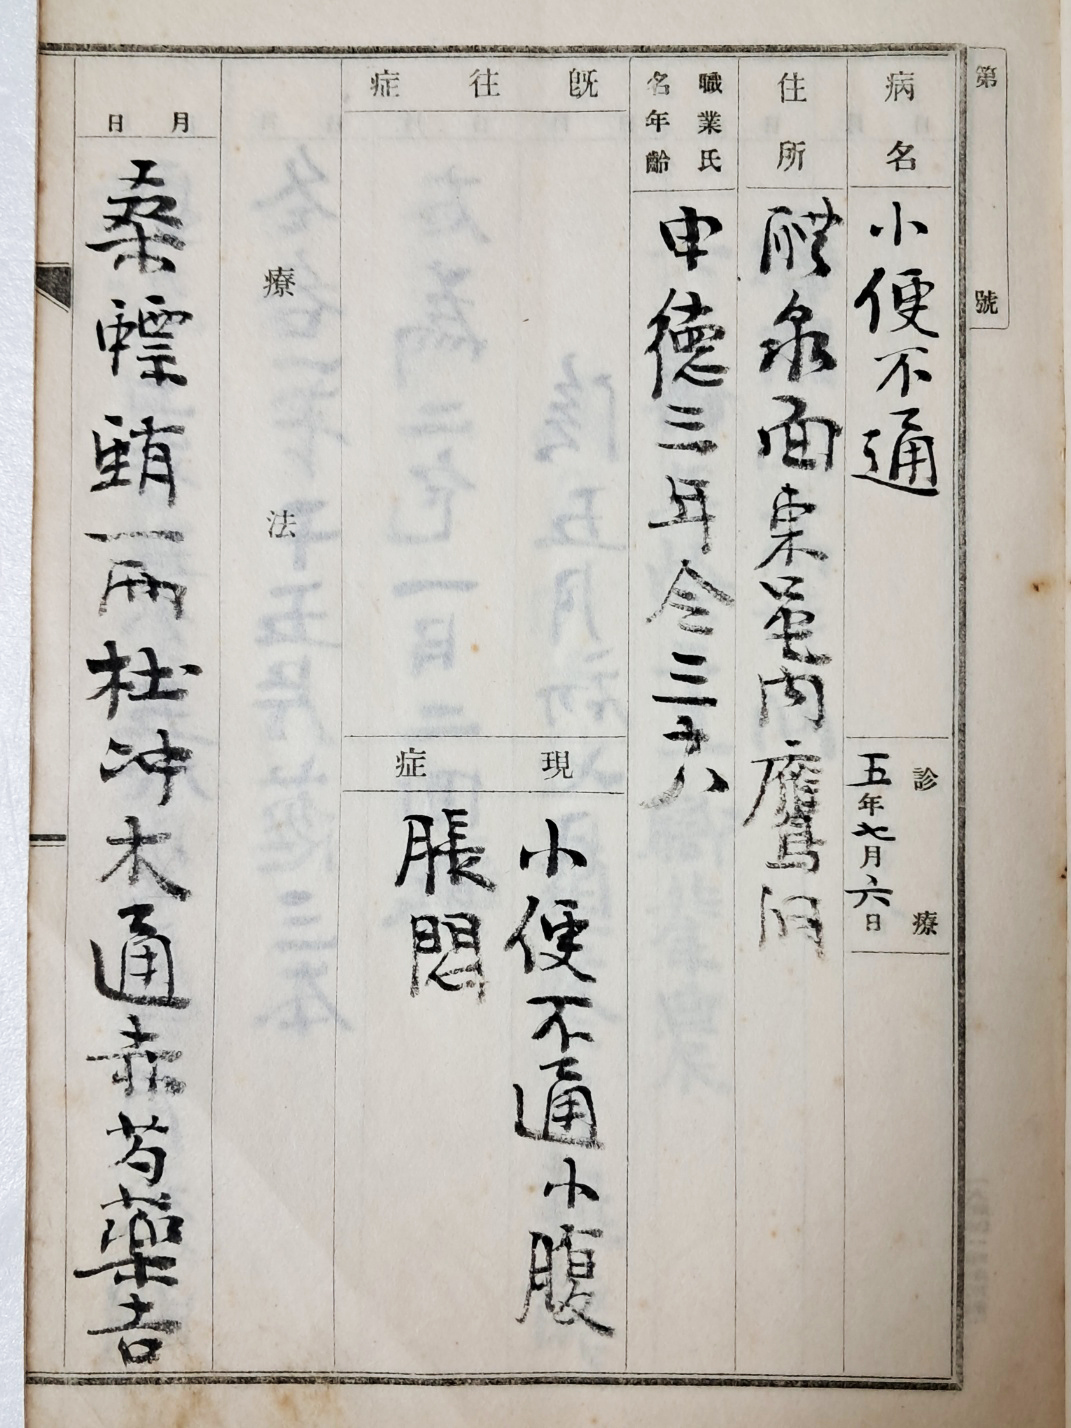 第 號
病名
小便不通
診療
五年七月六日
住所
醴泉面東 內鷹洞
職業氏
名年齡
申德三年令三十八
既往症
現症
小便不通小腹
脹悶
療法
月 日
桑螵蛸一兩杜沖木通赤芍藥吉